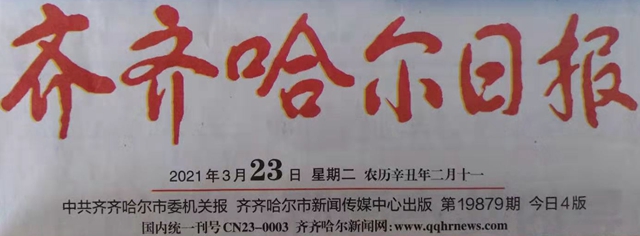 齐齐哈尔日报
2021年3月23日 星期二 农历辛丑年二月十一
中共齐齐哈尔市委机关报 齐齐哈尔市新闻传媒中心出版 第19879期 今日4版
国内统一刊号CN23-0003 齐齐哈尔新闻网:www.qqhrnews.com